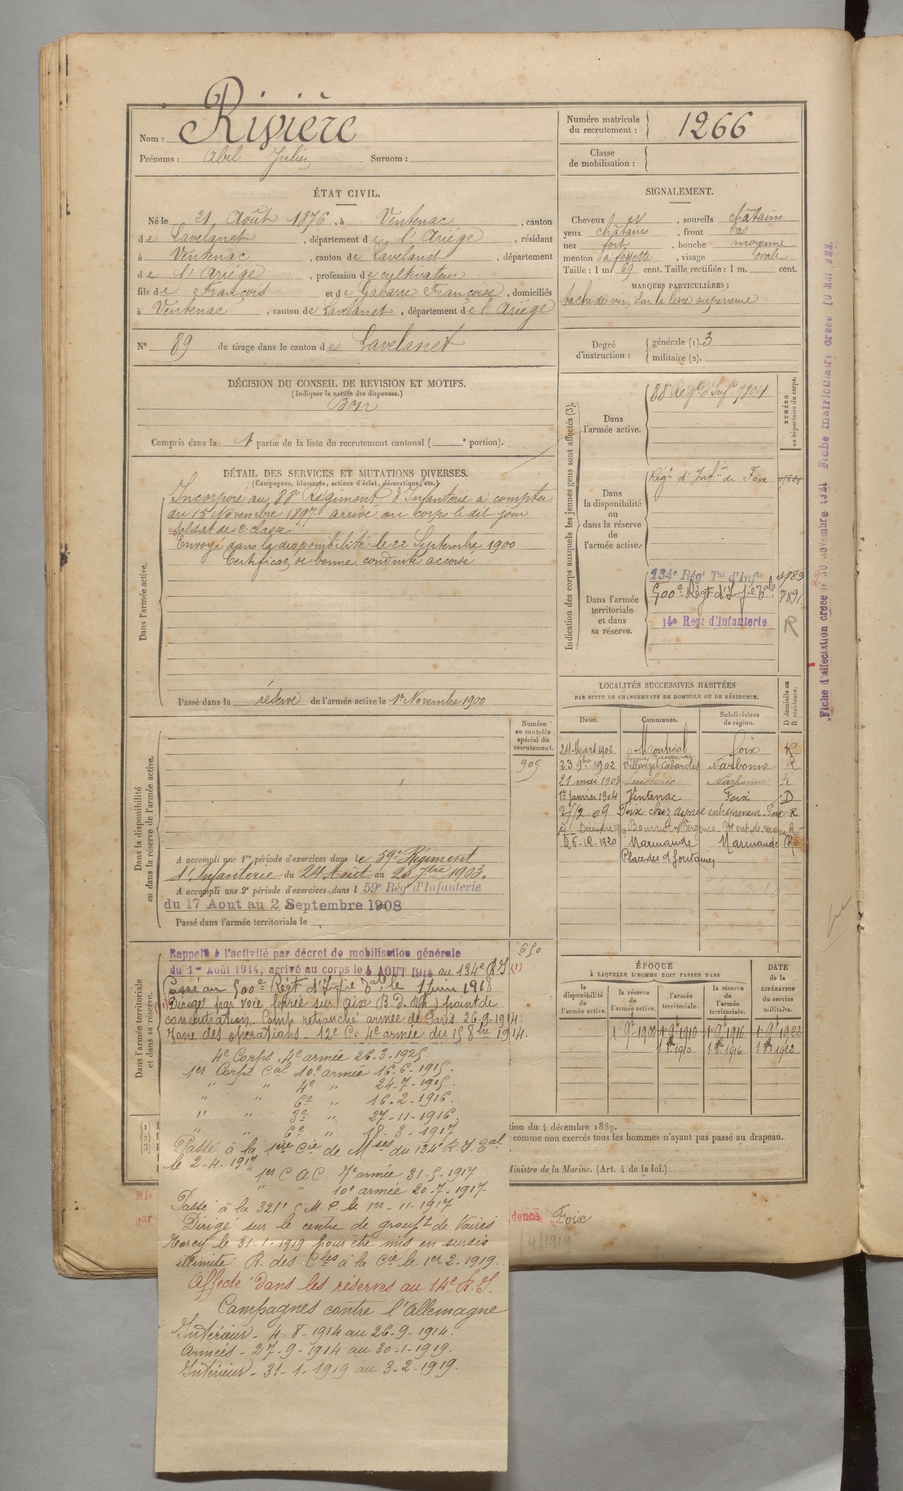 Nom : Rivière
Prénoms : Abel Julien Surnom :
Numéro matricule du recrutement : 1266
Classe de mobilisation :
ÉTAT CIVIL.
Né le 21 Août 1876, à Ventenac, canton
de Lavelanet, département de l'Ariége, résidant
à Ventenac, canton de Lavelanet, département
de l'Ariége, profession de cultivateur
fils de François et de Gabarre Françoise, domiciliés
à Ventenac, canton de Lavelanet, département de l'Ariége
N° 89 de tirage dans le canton de Lavelanet
SIGNALEMENT.
Cheveux , sourcils châtains
yeux châtains, front bas
nez fort, bouche moyenne
menton à fossette, visage ovale
Taille : 1 m. 69 cent. Taille rectifiée : 1 m. cent.
MARQUES PARTICULIÈRES :
tache de vin sur la lèvre supérieure
Degré d'instruction : générale (1). 3
militaire (2).
DÉCISION DU CONSEIL DE REVISION ET MOTIFS.
(Indiquer la nature des dispenses.)
Bon
Compris dans la 1 partie de la liste du recrutement cantonal ( e portion).
DÉTAIL DES SERVICES ET MUTATIONS DIVERSES.
(Campagnes, blessures, actions d'éclat, décorations, etc.)
Dans l'armée active.
Incorporé au 88e Régiment d'Infanterie à compter
du 15 Novembre 1897 arrivé au corps le dit jour
soldat de 2e classe
Envoyé dans la disponibilité le 22 Septembre 1900
Certificat de bonne conduite accordé
Passé dans la réserve de l'armée active le 1er Novembre 1900
Indication des corps auxquels les jeunes gens sont affectés (3).
NUMÉRO au répertoire du corps.
Dans l'armée active.
88 Régt d'Infie
Dans la disponibilité ou dans la réserve de l'armée active.
Régt d'Infie de Foix
Dans l'armée territoriale et dans sa réserve.
134e Régt Tal d'Infie 3989
500e Régt d'I
14e Régt d'Infanterie R
LOCALITÉS SUCCESSIVES HABITÉES
PAR SUITE DE CHANGEMENTS DE DOMICILE OU DE RÉSIDENCE.
Dates. Communes. Subdivisions de région. D domicile ou R résidence.
24 Mars 1902 Montréal Foix R
23 9bre 1902 Villarzel Cabardes Narbonne R
21 mai 1903 Narbonne R
1er Janvier 1904 Ventenac Foix D
2/12 09 Foix chez entrepreneur Foix R
1920 Marmande Marmande R
Place des fontaines
Dans la disponibilité ou dans la réserve de l'armée active.
Numéro au contrôle spécial du recrutement.
909
A accompli une 1re période d'exercices dans le 59e Régiment
d'Infanterie du 24 Août au 20 7bre 1903.
A accompli une 2e période d'exercices dans l 59e Rég d'Infanterie
du 17 Aout au 2 Septembre 1908
Passé dans l'armée territoriale le
Dans l'armée territoriale et dans sa réserve.
650
Rappelé à l'activité par décret de mobilisation générale
du 1er Août 1914, arrivé au corps le 4 AOUT 1914 au 134e R.I (1)
Passé au 500e Régt d'I le 1 Juin 1918
Dirigé par voie ferrée sur Aix point de
concentration. Camp retranché armée de Paris 26-9-1914
Zone des opérations - 12e C. 4e armée du 15 8bre 1914.
4e Corps, 4e armée 26-3-1925
1er Corps Cal 10e armée 16-6-1915.
" " 4e " 24-7-1915.
" " 6e " 16-2-1916.
" " 3e " 27-11-1916.
" " 6e " 18-3-1917
Passé à la 1ère Cie de Mses du 134e R.I. Tal
le 2-4-1917
1er C A C 7e armée 31-5-1917
" 10e armée 20-7-1917
Passé à la 321e C.M.P. le 1er-11-1917
Dirigé sur le centre de groupt de Vaires
Torcy le 31-1-1919 pour être mis en sursis
illimité R. des Cbes à la Cie le 1er-2-1919.
Affecté dans les réserves au 14e R.I.
Campagnes contre l'Allemagne
Intérieur - 4-8-1914 au 26-9-1914.
Armées - 27-9-1914 au 30-1-1919.
Intérieur - 31-1-1919 au 3-2-1919.
ÉPOQUE
À LAQUELLE L'HOMME DOIT PASSER DANS
DATE de la LIBÉRATION du service militaire.
la disponibilité de l'armée active. la réserve de l'armée active. l'armée territoriale. la réserve de l'armée territoriale.
1er 9bre 1900 1er 9bre 1910 1er 9bre 1916 1er 9bre 1922
1er 8bre 1910 1er 8bre 1916 1er 8bre 1922
tion du 4 décembre 1889.
comme non exercés tous les hommes n'ayant pas passé au drapeau.
Ministre de la Marine. (Art. 4 de la loi.)
dence Foix